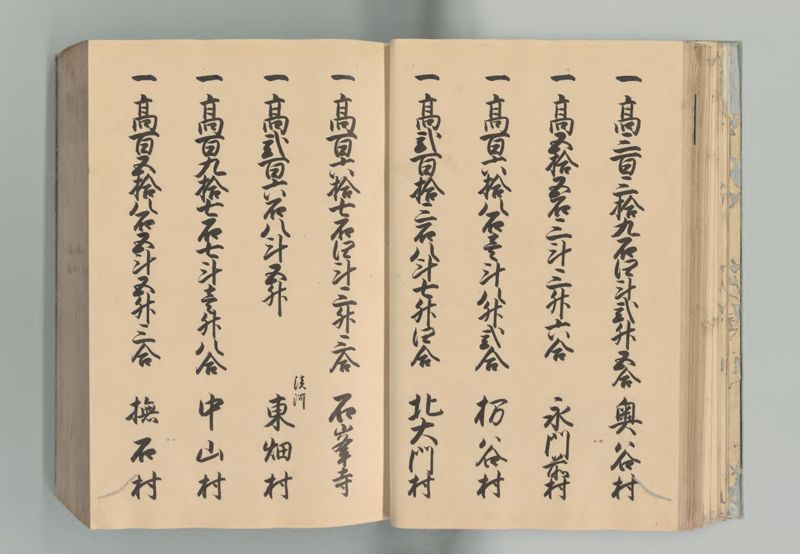 一 高三百三拾九石四斗弐升五合 奥谷村
一 高五拾五石三斗三升六合 永門前村
一 高百六拾八石壱斗八升弐合 杤谷村
一 高弐百拾三石八斗七升四合 北大門村
一 高百六拾七石四斗三升三合 石峯寺
一 高弐百六石八斗五升 淡河 東畑村
一 高百九拾七石七斗壱升八合 中山村
一 高百五拾八石五斗五升三合 撫石村